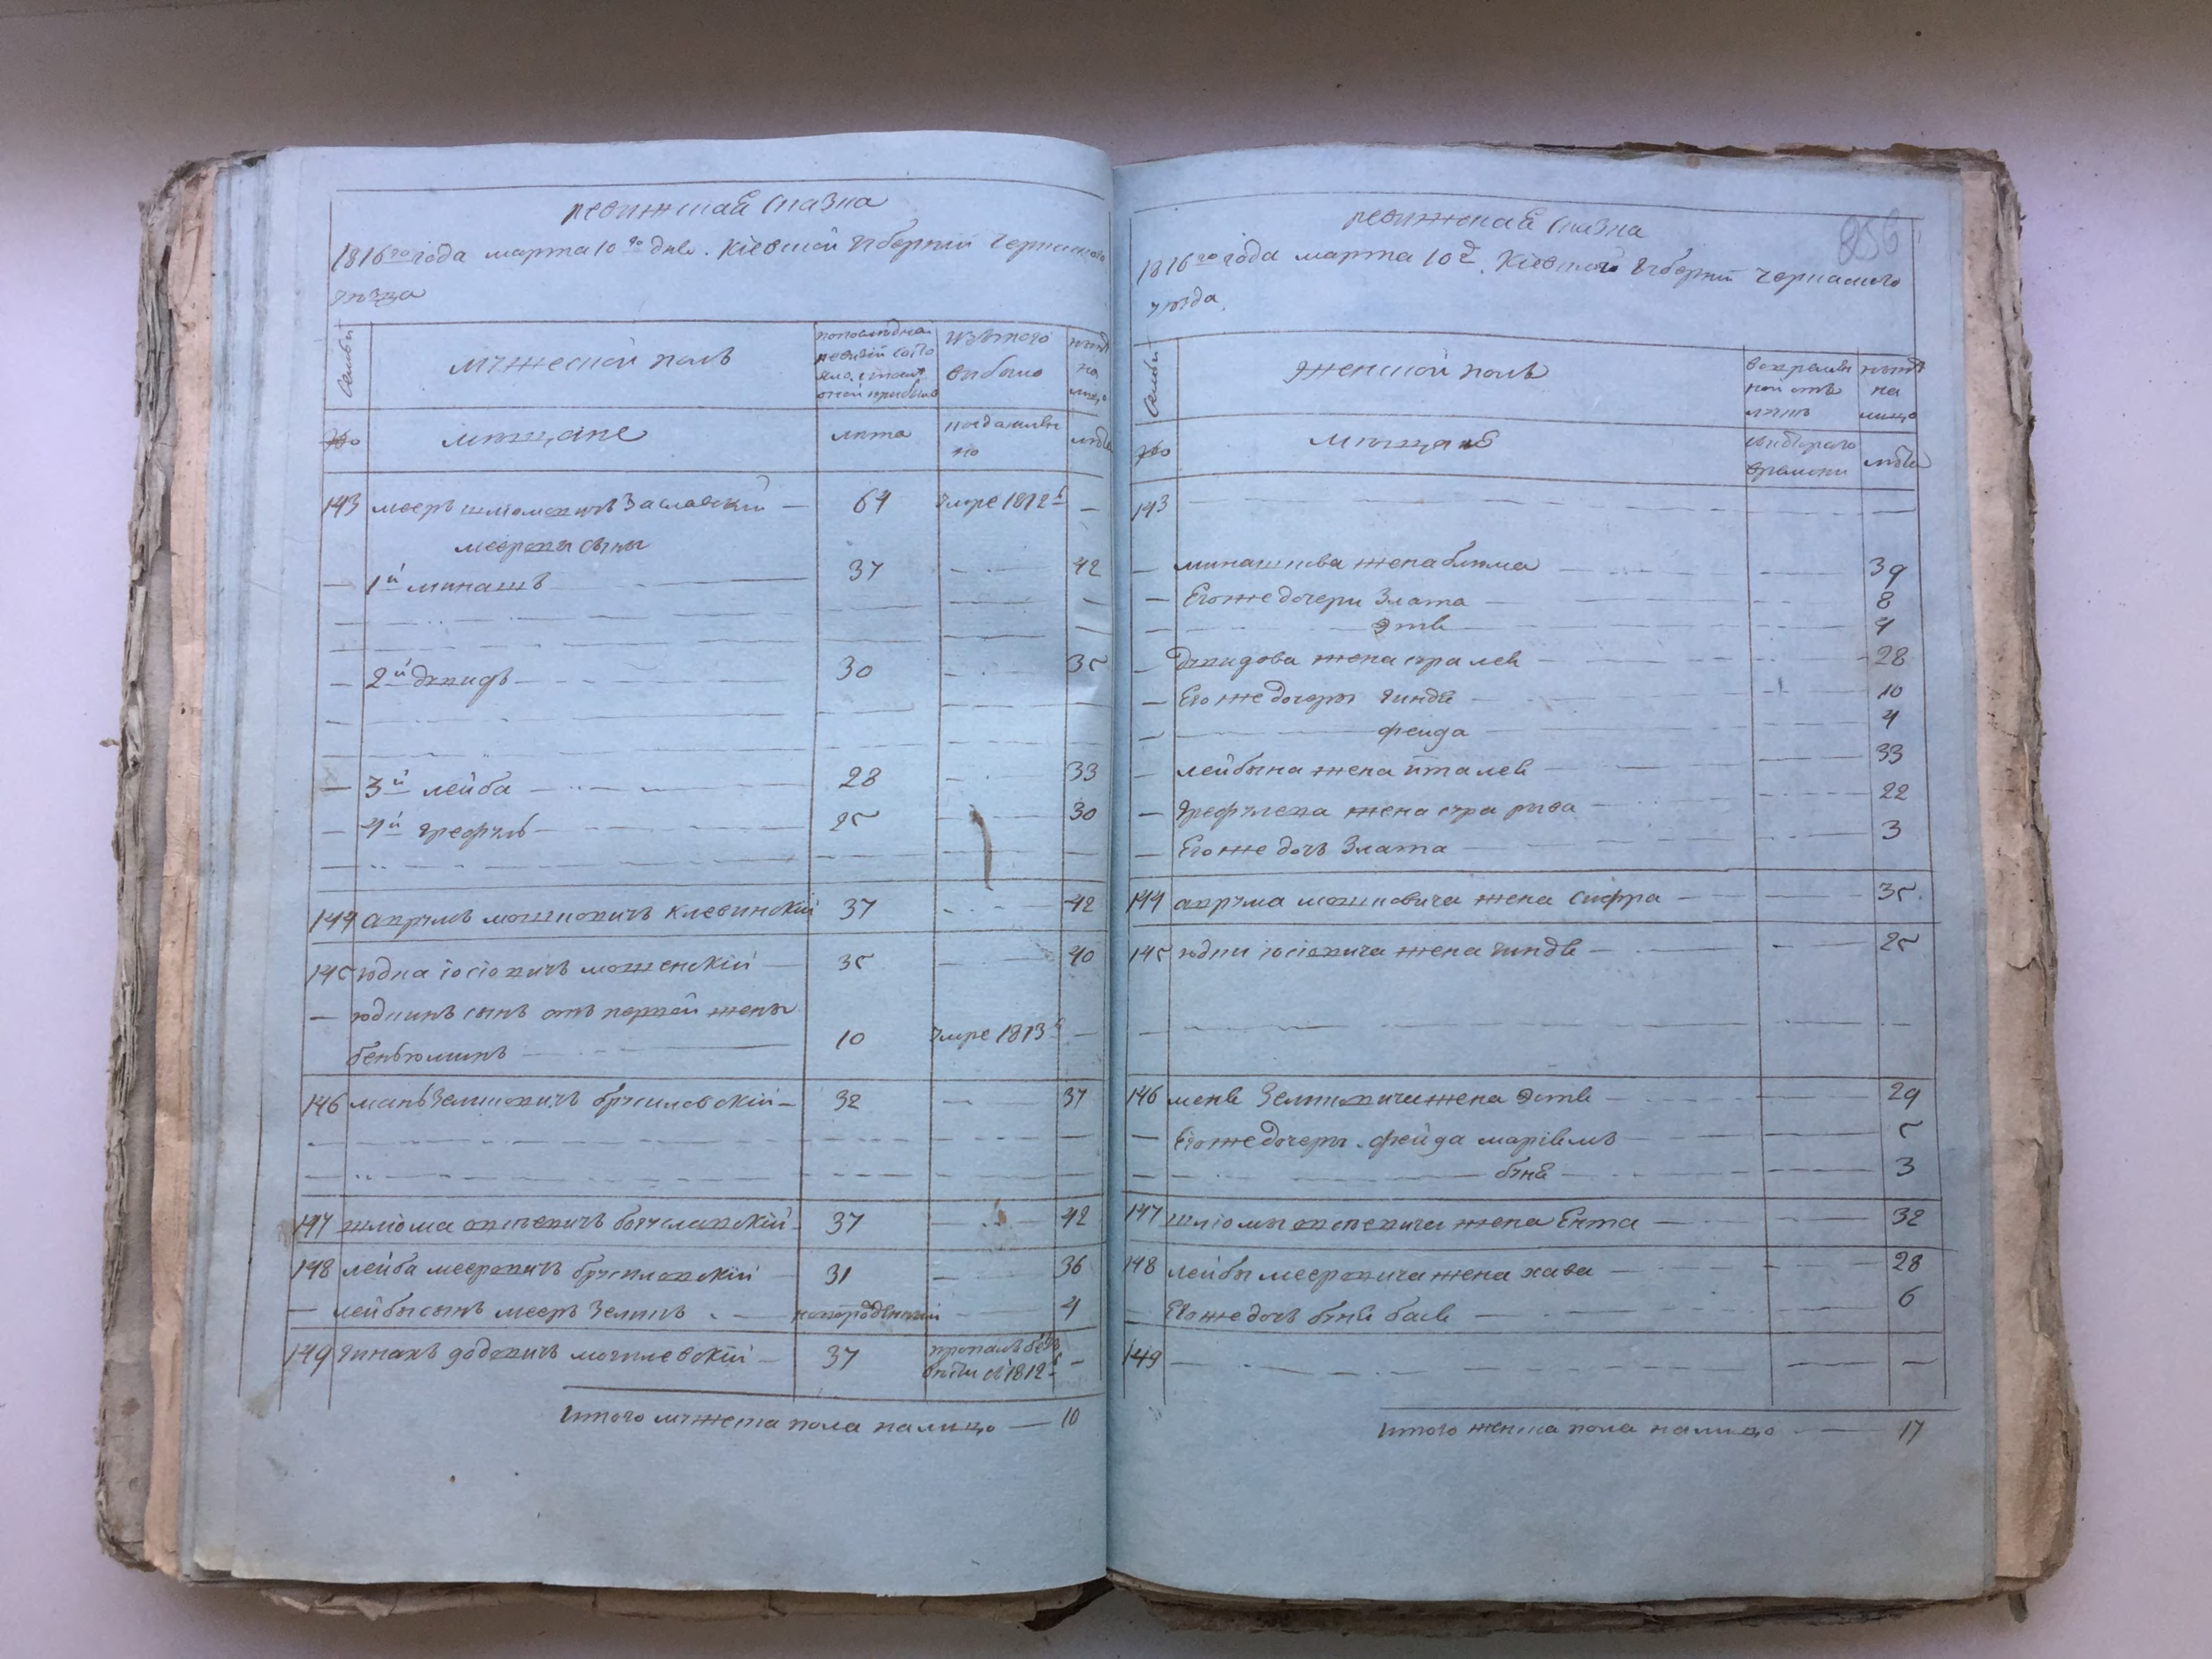 ревижская сказка
1816го года марта 10го дня. Кіевской губерніи Черкаского
уезда
Семьи
мужеской полъ
попоследней ревизіи состояло, и после оной прибыло
изътого выбыло
ныне на лицо
№
мещане
лета
когда именно
лета
143 мееръ шліомовичъ Заславский — 64 умре 1812г —
мееровы сыны
— 1й минашъ 37 — 42
— 2й давидъ 30 — 35
— 3й лейба 28 — 33
— 4й 25 — 30
144 аврумъ мошковичъ клевинскій 37 — 42
145 юдка іосіовичъ мошенскій 35 — 40
— юдкинъ сынъ отъ первой жены
беньюминъ 10 умре 1813г —
146 Зеликовичъ брусиловскій 32 — 37
147 шліома овсіевичъ богуславскій 37 — 42
148 лейба мееровичъ брусиловскій 31 — 36
— лейбы сынъ мееръ Зеликъ новорожденный — 4
149 довидовичъ могилевскій 37 пропалъ безъ вести въ 1812г —
Итого мужеска пола налицо — 10
ревижская сказка
856
1816го года марта 10д. Кіевской губерніи Черкаского
уезда.
Семьи
женской полъ
ныне на лицо
№
мещане
скоторого времени
лета
143 —
— минашова жена блюма 39
— Его же дочери Злата 8
— Этя 4
— давидова жена сура лея 28
— Его же дочери гиндя 10
— фейга 4
— лейбына жена ита лея 33
— жена сура рыва 22
— Его же дочь Злата 3
144 аврума мошковича жена сифра 35
145 юдки іосіовича жена гиндя 25
146 Зеликовича жена Эстя 29
— Его же дочери фейга маріемъ 5
— буня 3
147 шліомы овсіевича жена Ента 32
148 лейбы мееровича жена хава 28
— Его же дочь буня бася 6
149 —
Итого женска пола налицо — 17